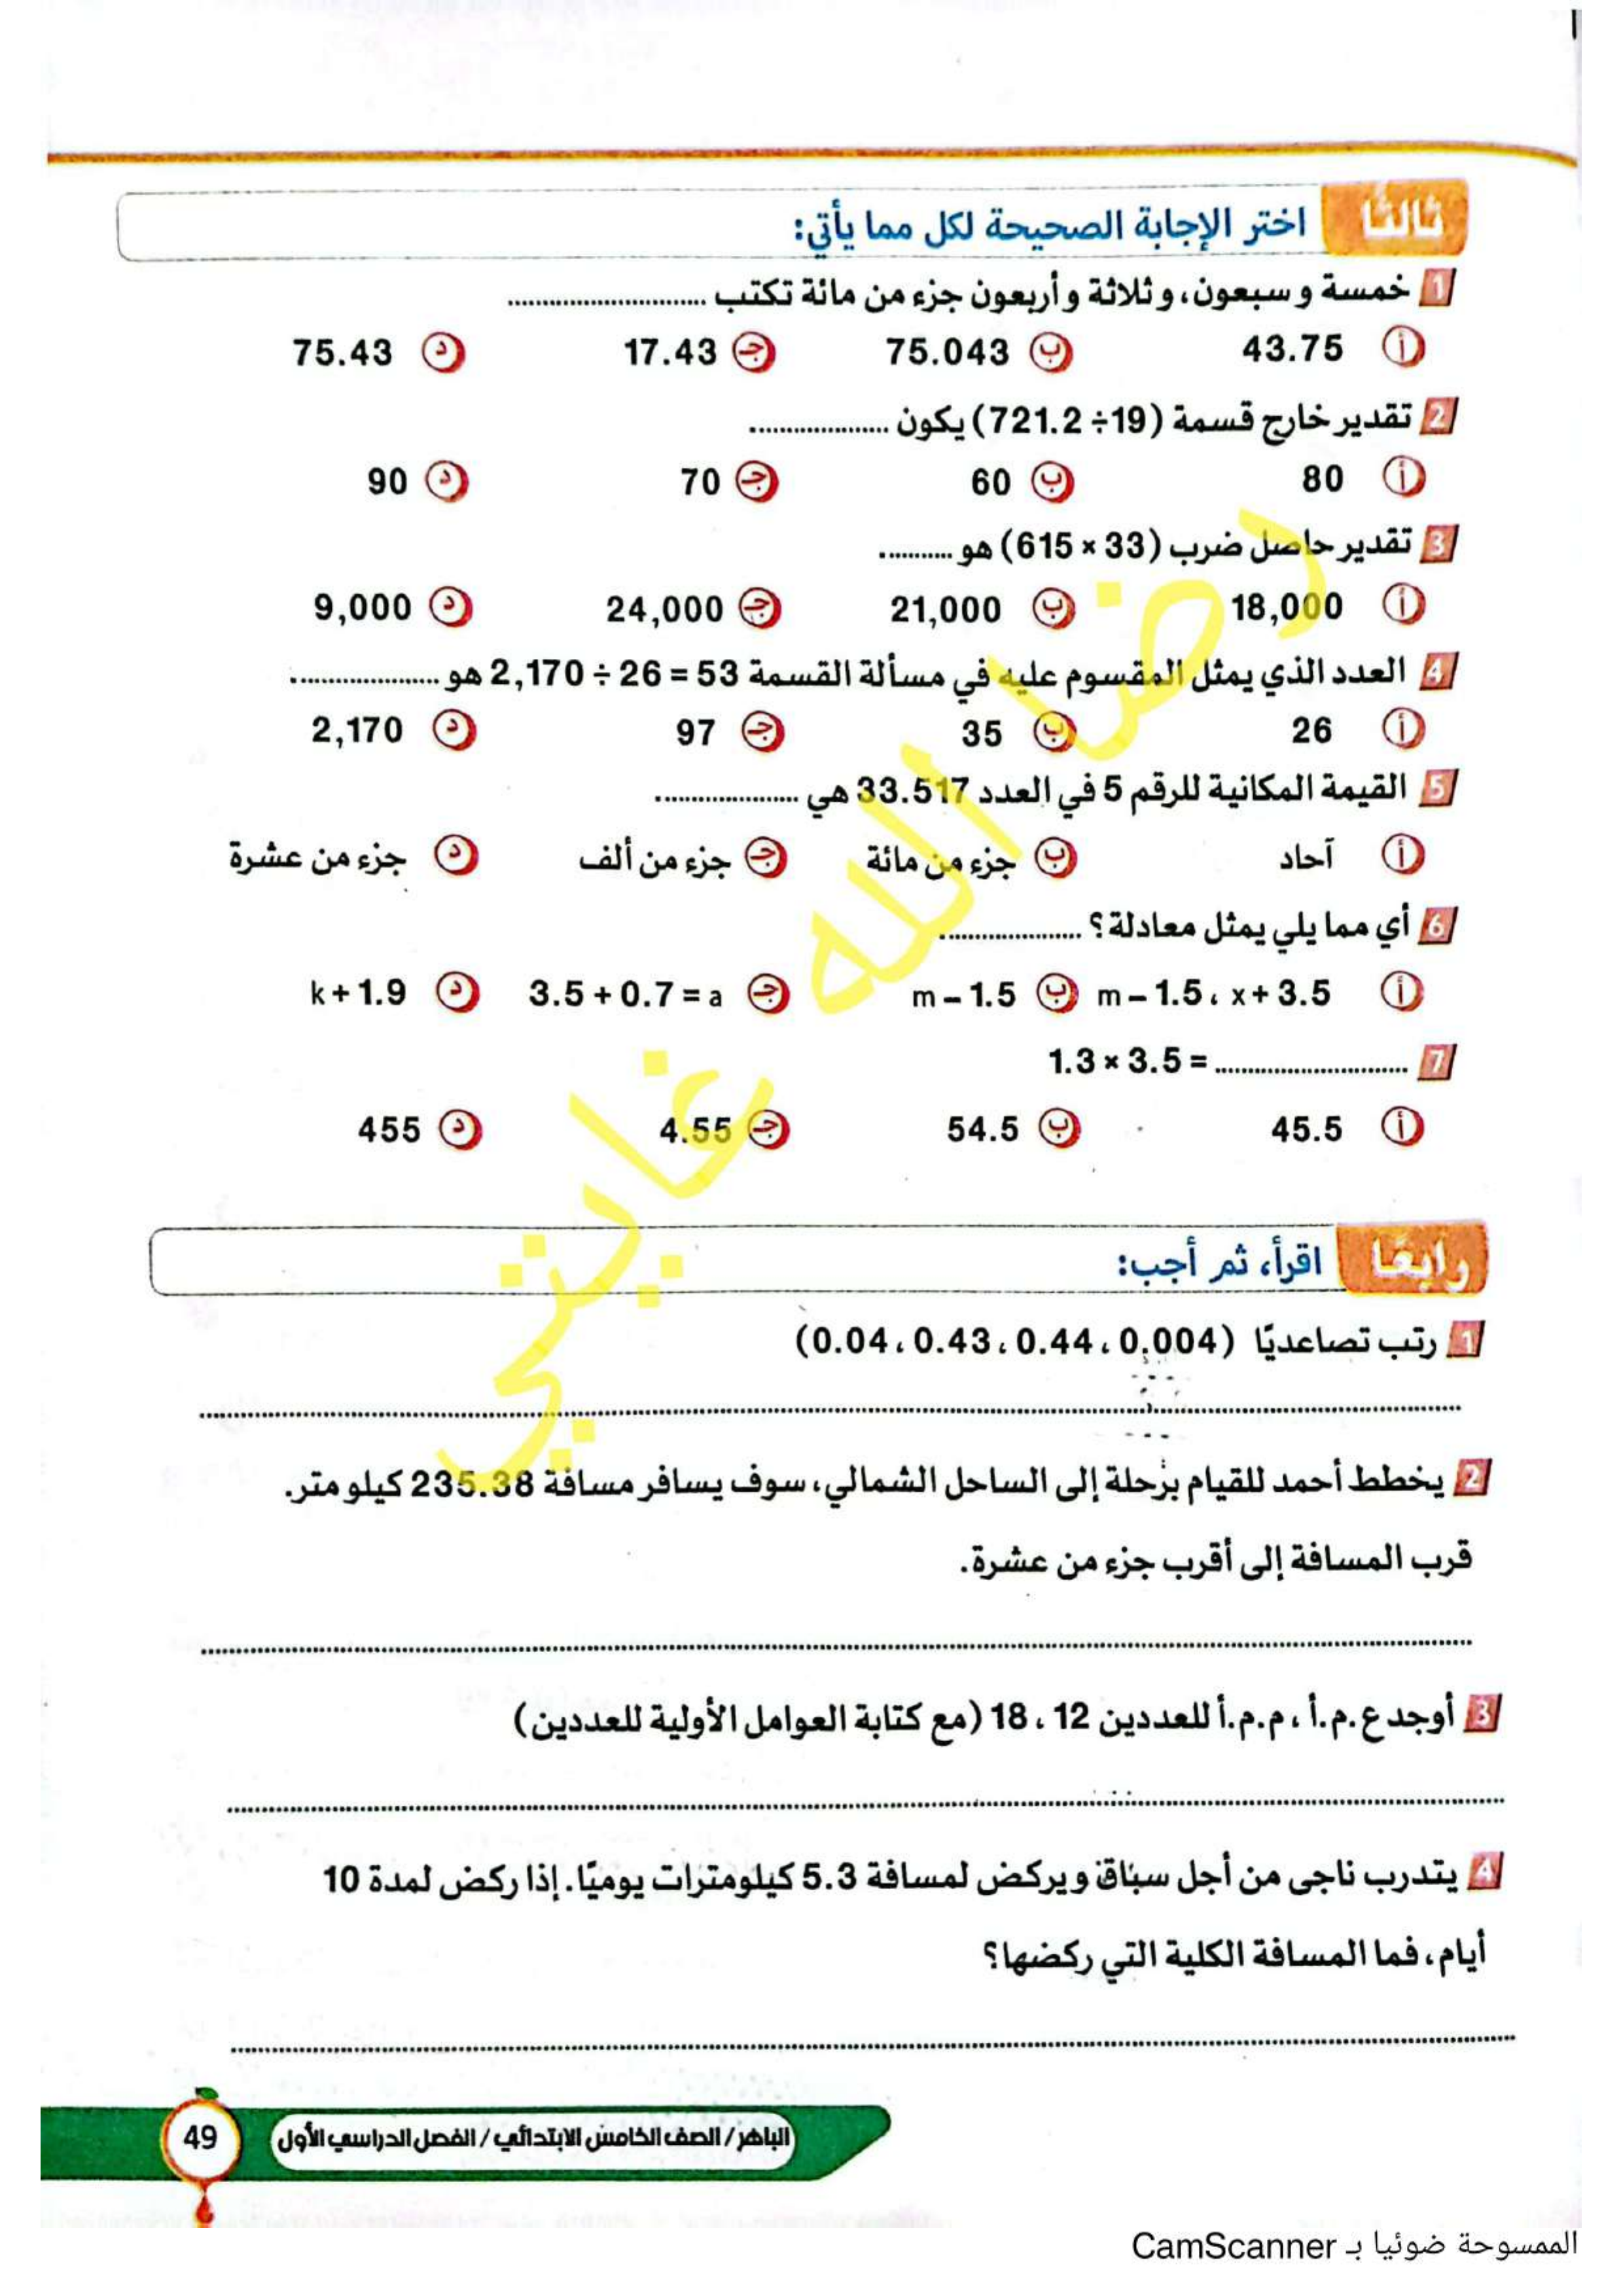 ثالثًا اختر الإجابة الصحيحة لكل مما يأتي:
1 خمسة وسبعون، وثلاثة وأربعون جزء من مائة تكتب ............................
أ 43.75 ب 75.043 ج 17.43 د 75.43
2 تقدير خارج قسمة (721.2 ÷19) يكون ....................
أ 80 ب 60 ج 70 د 90
3 تقدير حاصل ضرب (615 × 33) هو ...........
أ 18,000 ب 21,000 ج 24,000 د 9,000
4 العدد الذي يمثل المقسوم عليه في مسألة القسمة 2,170 ÷ 26 = 53 هو ......................
أ 26 ب 35 ج 97 د 2,170
5 القيمة المكانية للرقم 5 في العدد 33.517 هي .....................
أ آحاد ب جزء من مائة ج جزء من ألف د جزء من عشرة
6 أي مما يلي يمثل معادلة؟ .....................
أ m – 1.5 ، x + 3.5 ب m – 1.5 ج 3.5 + 0.7 = a د k + 1.9
7 1.3 × 3.5 = ............................
أ 45.5 ب 54.5 ج 4.55 د 455
رضا الله غايتي
رابعًا اقرأ، ثم أجب:
1 رتب تصاعديًا (0.04 ، 0.43 ، 0.44 ، 0.004)
2 يخطط أحمد للقيام برحلة إلى الساحل الشمالي، سوف يسافر مسافة 235.38 كيلو متر.
قرب المسافة إلى أقرب جزء من عشرة.
3 أوجد ع.م.أ ، م.م.أ للعددين 12 ، 18 (مع كتابة العوامل الأولية للعددين)
4 يتدرب ناجى من أجل سباق ويركض لمسافة 5.3 كيلومترات يوميًا. إذا ركض لمدة 10
أيام، فما المسافة الكلية التي ركضها؟
الباهر / الصف الخامس الابتدائي / الفصل الدراسي الأول
49
الممسوحة ضوئيا بـ CamScanner